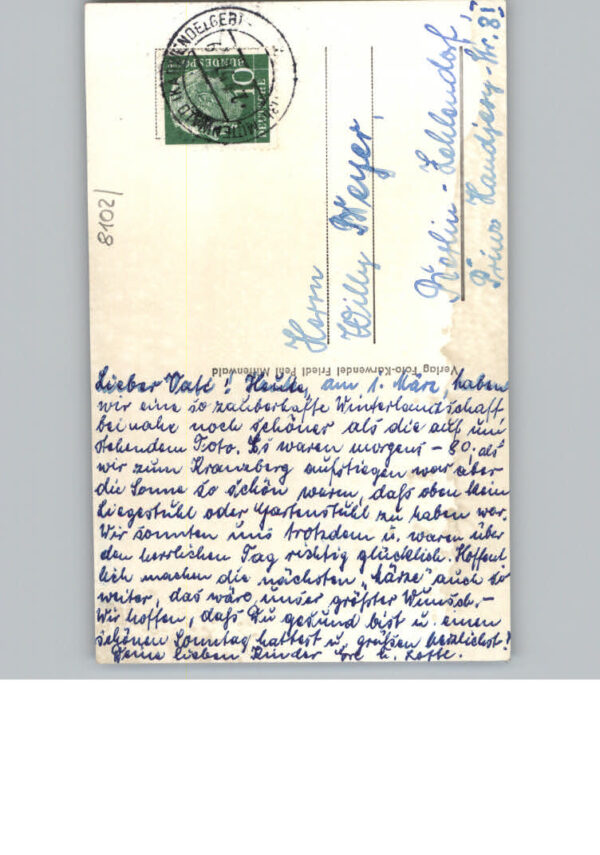 MITTENWALD (KARWENDELGEB)
10
DEUTSCHE
BUNDESPOST
8102/
Herrn
Willy Meyer,
Berlin-Zehlendorf,
Prinz Handjery-Str. 81
Verlag Foto-Karwendel Friedl Pehl Mittenwald
Lieber Vati! Heute, am 1. März, haben
wir eine so zauberhafte Winterlandschaft
beinahe noch schöner als die auf um
stehendem Foto. Es waren morgens - 8°, als
wir zum Kranzberg aufstiegen war aber
die Sonne so schön warm, daß oben kein
Liegestuhl oder Gartenstuhl zu haben war.
Wir sonnten uns trotzdem u. waren über
den herrlichen Tag richtig glücklich. Hoffent
lich machen die nächsten „Märze" auch so
weiter, das wäre unser größter Wunsch.-
Wir hoffen, daß Du gesund bist u. einen
schönen Sonntag hattest u. grüßen herzlichst!
Deine lieben Kinder u. Lotte.